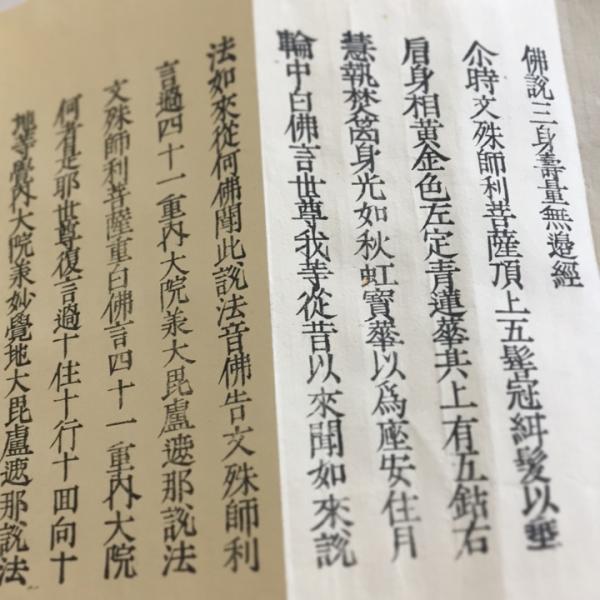 佛說三身壽量無邊經
尒時文殊師利菩薩頂上五髻冠絓髮以垂
眉身相黃金色左定青蓮華其上有五鈷右
慧執梵篋身光如秋虹寶華以爲座安住月
輪中白佛言世尊我等從昔以來聞如來說
法如來從何佛聞此說法音佛告文殊師利
言過四十一重內大院羕大毘盧遮那說法
文殊師利菩薩重白佛言四十一重內大院
何者是耶世尊復言過十住十行十回向十
地等覺內大院羕妙覺地大毘盧遮那說法